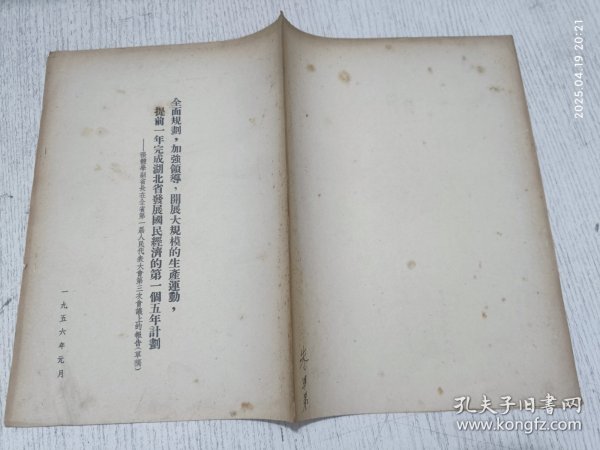 全面規劃，加強領導，開展大規模的生產運動，
提前一年完成湖北省發展國民經濟的第一個五年計劃
——張體學副省長在全省第一屆人民代表大會第三次會議上的報告（草稿）
一九五六年元月
2025.04.19 20:21
孔夫子旧书网
www.kongfz.com